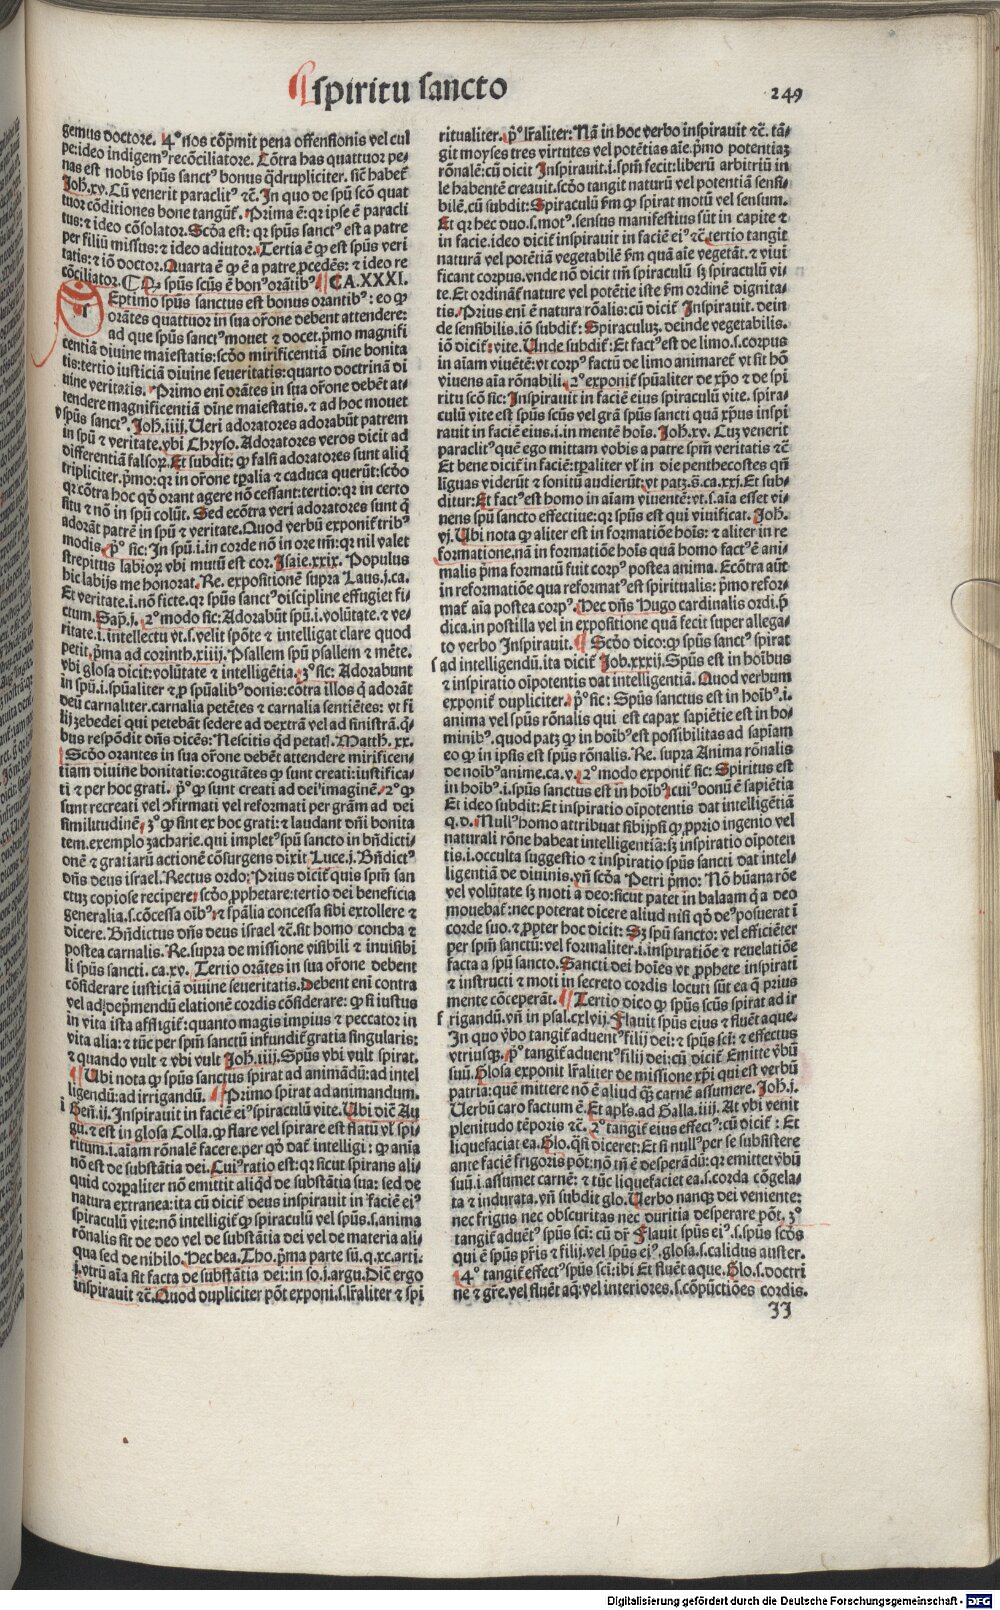 ¶ spiritu sancto
249
gemus doctore. 4° nos cōpᵐmit pena offensionis vel cul
pe: ideo indigemꝰ recōciliatore. Cōtra has quattuor pe⸗
nas est nobis spūs sanctꝰ bonus q̄drupliciter. sic̄ habet̄
Joh. xv. Cū venerit paraclitꝰ ⁊c̄. In quo de spū scō quat
tuor cōditiones bone tangūt̄. Prima ē: qꝛ ipse ē paracli
tus: ⁊ ideo cōsolator. Scōa est: qꝛ spūs sanctꝰ est a patre
per filiū missus: ⁊ ideo adiutor. Tertia ē ꝙ est spūs veri
tatis: ⁊ iō doctor. Quarta ē ꝙ ē a patre ꝓcedēs: ⁊ ideo re
cōciliator. ¶ Qꝫ spūs scūs ē bonꝰ orātibꝰ ¶ CA. XXXI.
Eptimo spūs sanctus est bonus orantibꝰ: eo ꝙ
orātes quattuor in sua or̄one debent attendere:
ad que spūs sanctꝰ mouet ⁊ docet. pᵐmo magnifi
centiā diuine maiestatis: scōo mirificentiā diuine bonita
tis: tertio iusticiā diuine seueritatis: quarto doctrinā di
uine veritatis. Primo enī orātes in sua or̄one debēt at⸗
tendere magnificentiā diuīe maiestatis. ⁊ ad hoc mouet
spūs sanctꝰ. Joh. iiij. Ueri adoratores adorabūt patrem
in spū ⁊ veritate. vbi Chryso. Adoratores veros dicit ad
differentiā falsoꝝ. Et subdit: ꝙ falsi adoratores sunt aliq̄
tripliciter. pᵐmo: qꝛ in or̄one tp̄alia ⁊ caduca querūt: scōo
qꝛ cōtra hoc qd̄ orant agere nō cessant: tertio: qꝛ in certo
situ ⁊ nō in spū colūt. Sed ecōtra veri adoratores sunt q̄
adorāt patrē in spū ⁊ veritate. Quod verbū exponit̄ tribꝰ
modis. p̄° sic: In spū. i. in corde nō in ore tm̄: qꝛ nil valet
strepitus labioꝝ vbi mutū est cor. Isaie. xxix. Populus
hic labijs me honorat. Re. expositionē supra Laus. j. ca.
Et veritate. i. nō ficte. qꝛ spūs sanctꝰ discipline effugiet fi⸗
ctum. Sap̄. j. 2° modo sic: Adorabūt spū. i. volūtate. ⁊ ve⸗
ritate. i. intellectu vt. s. velit spōte ⁊ intelligat clare quod
petit. p̄ma ad corinth. xiiij. Psallem spū psallem ⁊ mēte.
vbi glosa dicit: volūtate ⁊ intelligētia. 3° sic: Adorabunt
in spū. i. spūaliter ⁊ ꝓ spūalibꝰ donis: cōtra illos q̄ adorāt
deū carnaliter. carnalia petētes ⁊ carnalia sentiētes: vt fi
lij zebedei qui petebāt sedere ad dextrā vel ad sinistrā. q̄⸗
bus respōdit dn̄s dicēs: Nescitis qd̄ petat̄. Matth. xx.
Scōo orantes in sua or̄one debēt attendere mirificen⸗
tiam diuine bonitatis: cogitātes ꝙ sunt creati: iustifica⸗
ti ⁊ per hoc grati. p̄° ꝙ sunt creati ad dei imaginē. 2° ꝙ
sunt recreati vel ꝯfirmati vel reformati per grām ad dei
similitudinē. 3° ꝙ sint ex hoc grati: ⁊ laudant dn̄i bonita
tem. exemplo zacharie. qui impletꝰ spū sancto in bn̄dicti⸗
onē ⁊ gratiarū actionē cōsurgens dixit Luce. j. Bn̄dictꝰ
dn̄s deus israel. Rectus ordo: Prius dicit̄ quis spm̄ san
ctuꝫ copiose recipere: scōo, ꝓphetare: tertio dei beneficia
generalia. s. cōcessa oībꝰ: ⁊ spālia concessa sibi extollere ⁊
dicere. Bn̄dictus dn̄s deus israel ⁊c̄. sit homo concha ⁊
postea carnalis. Re. supra de missione visibili ⁊ inuisibi
li spūs sancti. ca. xv. Tertio orātes in sua or̄one debent
cōsiderare iusticiā diuine seueritatis. Debent enī contra
vel ad depᵐmendū elationē cordis cōsiderare: ꝙ si iustus
in vita ista affligit̄: quanto magis impius ⁊ peccator in
vita alia: ⁊ tūc per spm̄ sanctū infundit̄ gratia singularis:
⁊ quando vult ⁊ vbi vult Joh. iiij. Spūs vbi vult spirat.
¶ Ubi nota ꝙ spūs sanctus spirat ad animādū: ad intel
ligendū: ad irrigandū. ¶ Primo spirat ad animandum.
Gen̄. ii. Inspirauit in faciē eiꝰ spiraculū vite. Ubi diē Au
gu. ⁊ est in glosa Colla. ꝙ flare vel spirare est flatū vl̄ spi⸗
ritum. i. aīam rōnalē facere. per qd̄ dat̄ intelligi: ꝙ anīa
nō est de substātia dei. Cuiꝰ ratio est: qꝛ sicut spirans ali⸗
quid corꝑaliter nō emittit aliqd̄ de substātia sua: sed de
natura extranea: ita cū dicit̄ deus inspirauit in faciē eiꝰ
spiraculū vite: nō intelligit̄ ꝙ spiraculū vel spūs. s. anima
rōnalis sit de deo vel de substātia dei vel de materia ali⸗
qua sed de nihilo. Hec bea. Tho. p̄ma parte sū. q. xc. arti.
j. vtrū aīa sit facta de substātia dei: in so. j. argu. Diē ergo
inspirauit ⁊c̄. Quod dupliciter pōt exponi. s. lr̄aliter ⁊ spi
ritualiter. p̄° lr̄aliter: Nā in hoc verbo inspirauit ⁊c̄. tā⸗
git moyses tres virtutes vel potētias aīe. pᵐmo potentiaꝫ
rōnalē: cū dicit Inspirauit. i. spm̄ fecit: liberū arbitriū in
le habentē creauit. scōo tangit naturū vel potentiā sensi⸗
bilē. cū subdit: Spiraculū ẜm ꝙ spirat motū vel sensum.
Et qꝛ hec duo. s. motꝰ. sensus manifestius sūt in capite ⁊
in facie. ideo dicit̄ inspirauit in faciē eiꝰ ⁊c̄. tertio tangit
naturā vel potētiā vegetabilē ẜm quā aīe vegetāt. ⁊ viui
ficant corpus. vnde nō dicit tm̄ spiraculū sꝫ spiraculū vi⸗
te. Et ordināt̄ nature vel potētie iste ẜm ordinē dignita⸗
tis. Prius enī ē natura rōalis: cū dicit̄ Inspirauit. dein
de sensibilis. iō subdit̄: Spiraculuꝫ. deinde vegetabilis.
iō dicit̄: vite. Unde subdit̄: Et factꝰ est de limo. s. corpus
in aīam viuētē: vt corpꝰ factū de limo animaret̄ vt sit hō
viuens aīa rōnabili. 2° exponit̄ spūaliter de xp̄o ⁊ de spi
ritu scō sic: Inspirauit in faciē eius spiraculū vite. spira⸗
culū vite est spūs scūs vel grā spūs sancti quā xp̄us inspi
rauit in faciē eius. i. in mentē hoīs. Joh. xv. Cuꝫ venerit
paraclitꝰ quē ego mittam vobis a patre spm̄ veritatis ⁊c̄
Et bene dicit̄ in faciē: tꝑaliter vl̄ in die penthecostes qn̄
līguas viderūt ⁊ sonitū audierūt: vt patꝫ. s̄. ca. xxj. Et sub⸗
ditur: Et factꝰ est homo in aīam viuentē: vt. s. aīa esset vi⸗
uens spū sancto effectiue: qꝛ spūs est qui viuificat. Joh.
vj. Ubi nota ꝙ aliter est in formatiōe hoīs: ⁊ aliter in re
formatione. nā in formatiōe hoīs quā homo factꝰ ē ani⸗
malis p̄ma formatū fuit corpꝰ postea anima. Ecōtra aūt
in reformatiōe qua reformatꝰ est spiritualis: pᵐmo refor⸗
mat̄ aīa postea corpꝰ. Hec dn̄s Hugo cardinalis ordi. p̄
dica. in postilla vel in expositione quā fecit super allega⸗
to verbo Inspirauit. ¶ Scōo dico: ꝙ spūs sanctꝰ spirat
ad intelligendū. ita dicit̄ Job. xxxij. Spūs est in hoībus
⁊ inspiratio oīpotentis dat intelligentiā. Quod verbum
exponit̄ dupliciter. p̄° sic: Spūs sanctus est in hoībꝰ. i.
anima vel spūs rōnalis qui est capax sapiētie est in ho⸗
minibꝰ. quod patꝫ ꝙ in hoībꝰ est possibilitas ad sapīam
eo ꝙ in ipsis est spūs rōnalis. Re. supra Anima rōnalis
de noībꝰ anime. ca. v. 2° modo exponit̄ sic: Spiritus est
in hoībꝰ. i. spūs sanctus est in hoībꝰ: cuiꝰ donū ē sapiētia
Et ideo subdit: Et inspiratio oīpotentis dat intelligētiā
q. d. Nullꝰ homo attribuat sibijpsi ꝙ ꝓprio ingenio vel
naturali rōne habeat intelligentiā: sꝫ inspiratio oīpoten
tis. i. occulta suggestio ⁊ inspiratio spūs sancti dat intel⸗
ligentiā de diuinis. vn̄ scōa Petri pᵐmo: Nō hūana rōe
vel volūtate sꝫ moti a deo: sicut patet in balaam q̄ a deo
mouebat̄: nec poterat dicere aliud nisi qd̄ deꝰ posuerat ī
corde suo. ⁊ ꝓpter hoc dicit: Sꝫ spū sancto: vel efficiēter
per spm̄ sanctū: vel formaliter. i. inspiratiōe ⁊ reuelatiōe
facta a spū sancto. Sancti dei hoīes vt ꝓphete inspirati
⁊ instructi ⁊ moti in secreto cordis locuti sūt ea q̄ prius
mente cōceperāt. ¶ Tertio dico ꝙ spūs scūs spirat ad ir
rigandū. vn̄ in psal. cxlvij. Flauit spūs eius ⁊ fluēt aque.
In quo v̄bo tangit̄ aduentꝰ filij dei: ⁊ spūs sci: ⁊ effectus
vtriusqꝫ. p̄° tangit̄ aduentꝰ filij dei: cū dicit̄ Emitte v̄bū
suū. Glosa exponit lr̄aliter de missione xp̄i qui est verbū
patria: quē mittere nō ē aliud qꝫ carnē assumere. Joh. j.
Uerbū caro factum ē. Et apl̄s. ad Galla. iiij. At vbi venit
plenitudo tēporis ⁊c̄. 2° tangit̄ eius effectꝰ: cū dicit̄: Et
liquefaciat ea. Glo. q̄si diceret: Et si nullꝰ per se subsistere
ante faciē frigoris pōt: nō tn̄ ē desperādū: qꝛ emittet v̄bū
suū. i. assumet carnē: ⁊ tūc liquefaciet ea. s. corda cōgela⸗
ta ⁊ indurata. vn̄ subdit glo. Uerbo nanqꝫ dei veniente:
nec frigus nec obscuritas nec duritia desperare pōt. 3°
tangit̄ aduētꝰ spūs sci: cū dr̄ Flauit spūs eiꝰ. s. spūs scōs
qui ē spūs pr̄is ⁊ filij. vel spūs eiꝰ. glosa. s. calidus auster.
4° tangit̄ effectꝰ spūs sci: ibi Et fluēt aque. Glo. s. doctri
ne ⁊ gr̄e. vel fluēt aq̄: vel interiores. s. cōpūctiōes cordis.
II
Digitalisierung gefördert durch die Deutsche Forschungsgemeinschaft - DFG